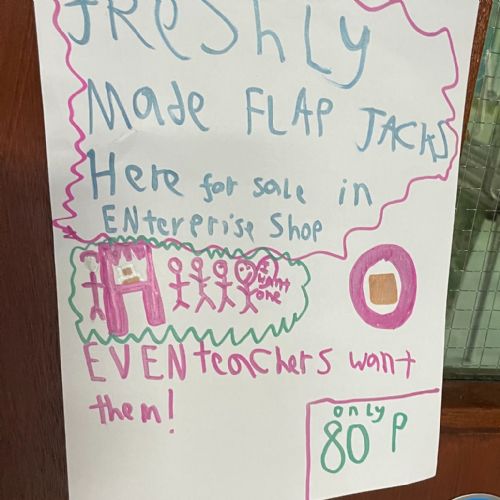 FReShLy
Made FLAP JACKS
Here for sale in
ENterprise Shop
I
want
one
EVEN teachers want
them!
only
80 P